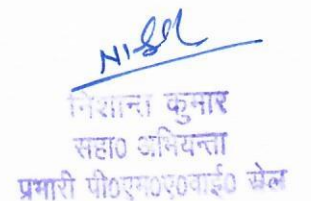 निशान्त कुमार
सहा० अभियन्ता
प्रभारी पी०एम०ए०वाई० सेल